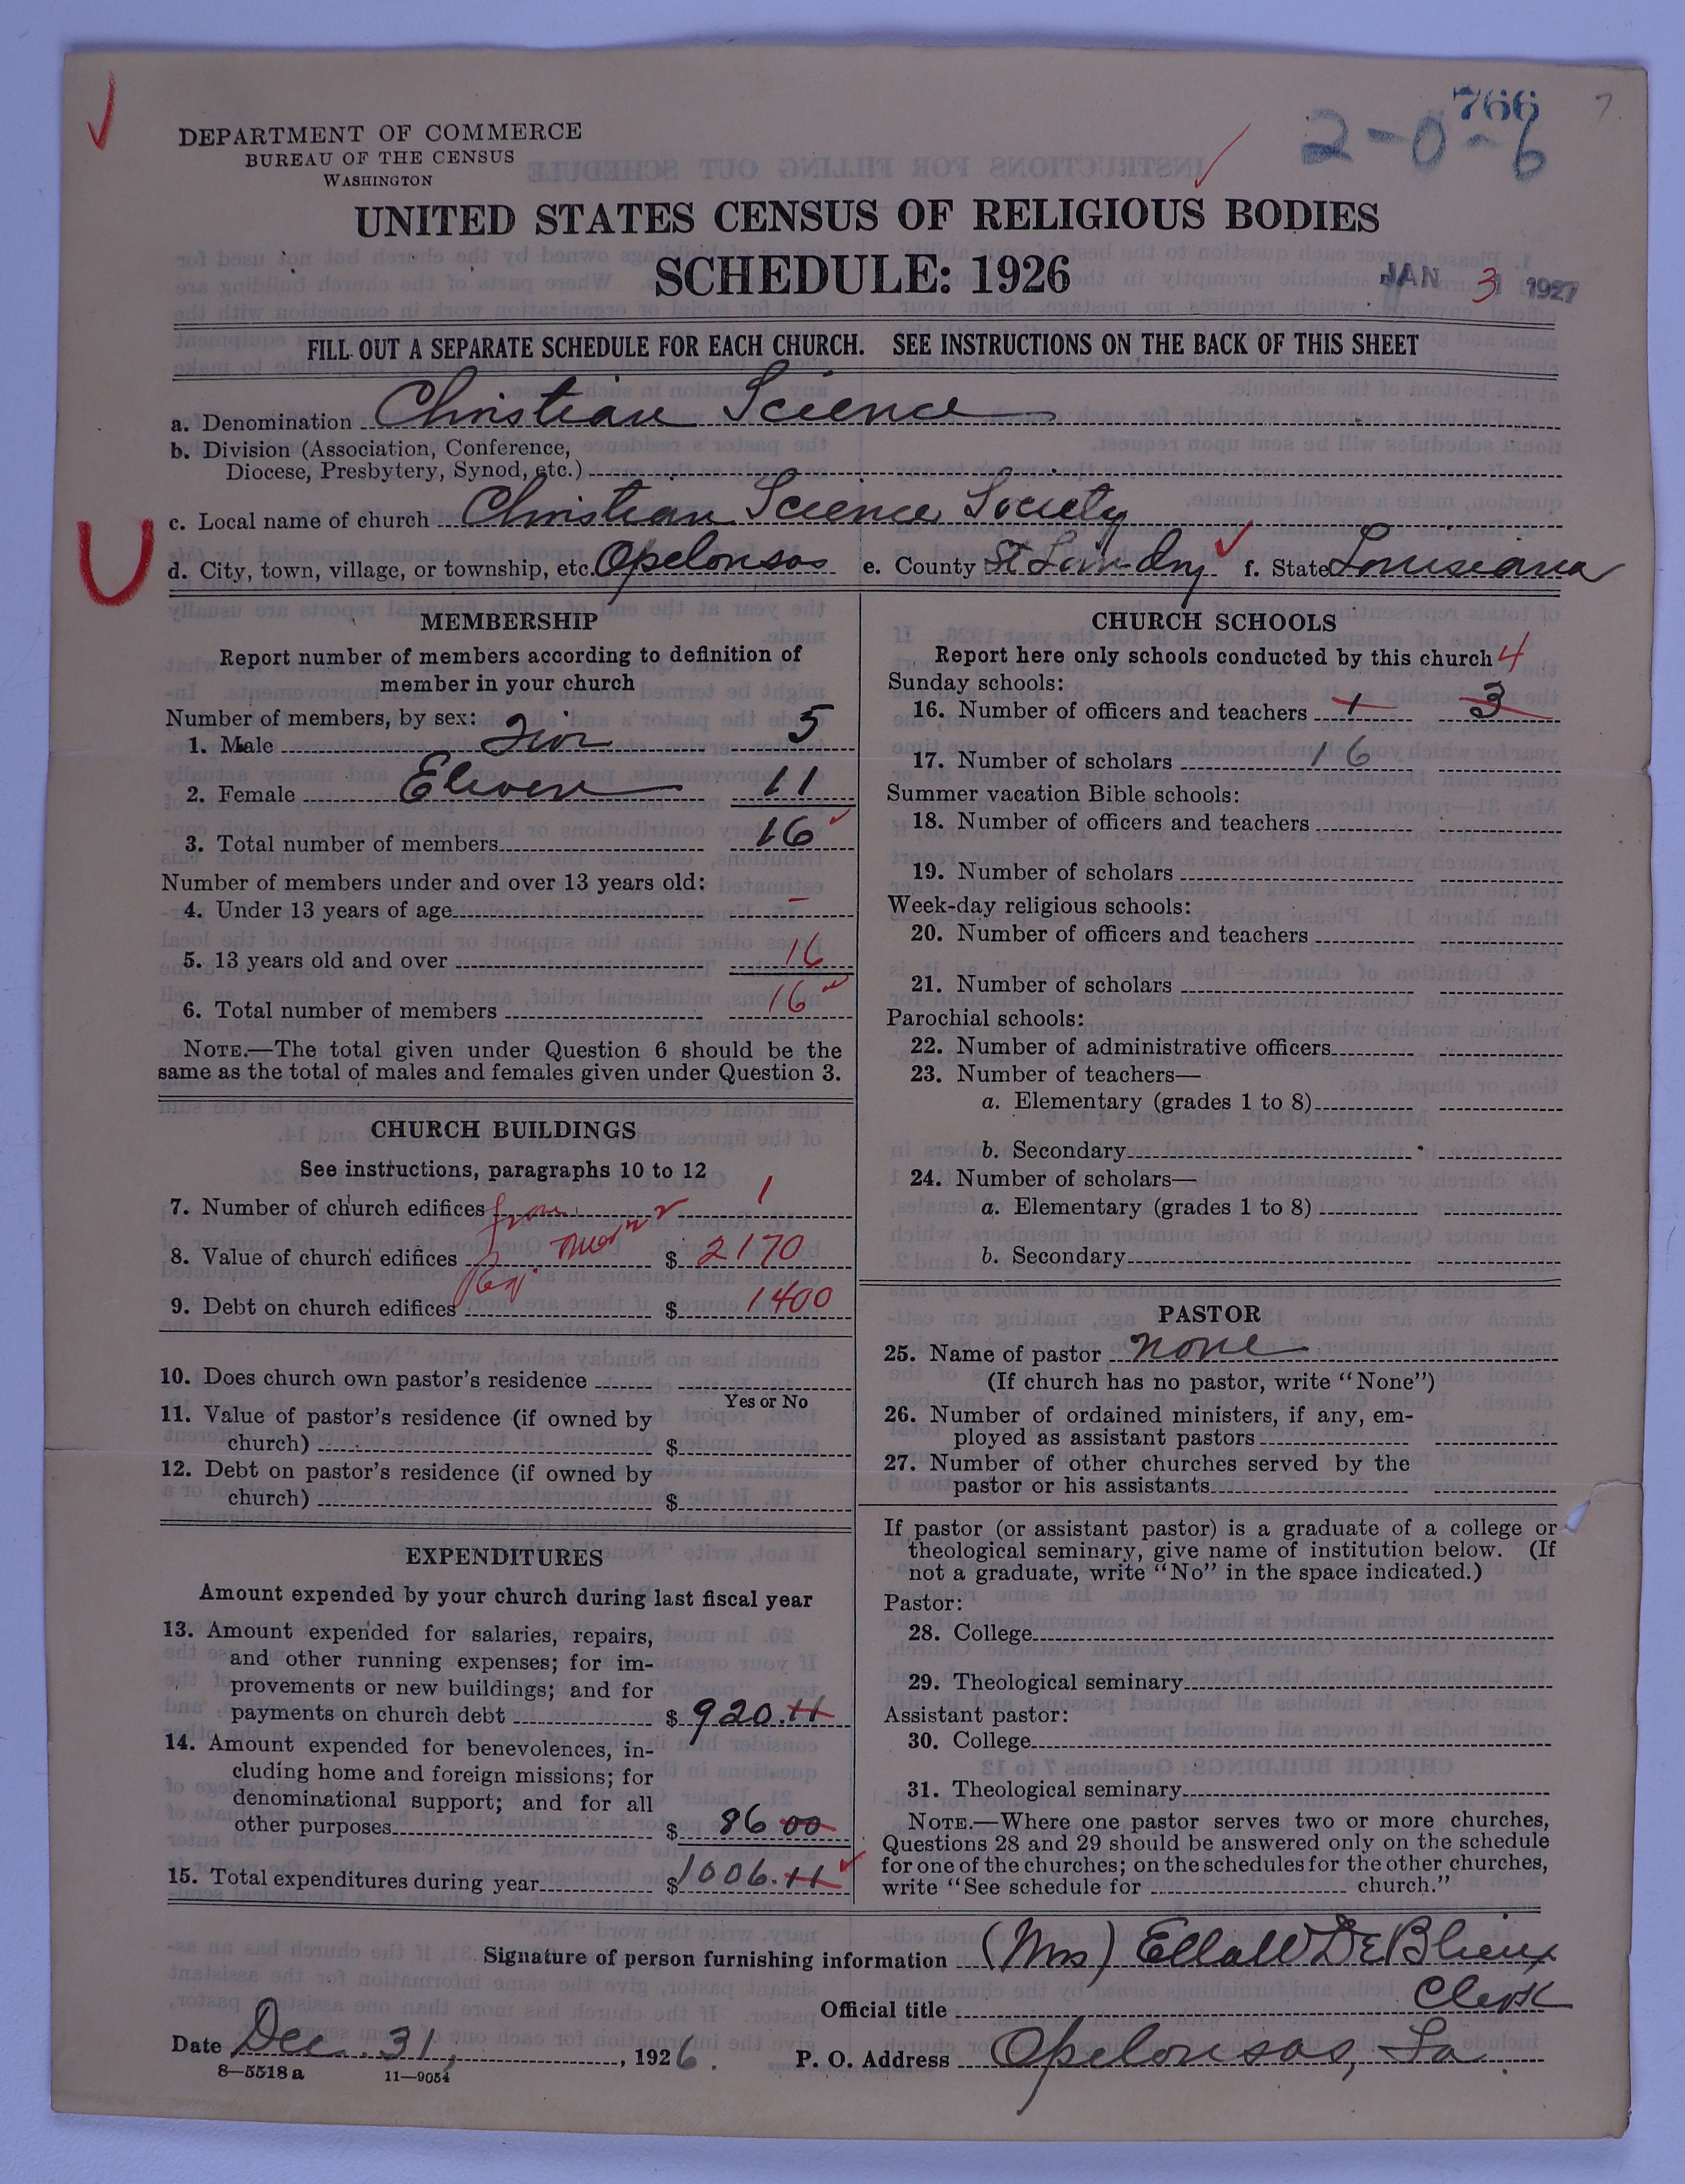 766
2-0-6
7.
DEPARTMENT OF COMMERCE
BUREAU OF THE CENSUS
WASHINGTON
UNITED STATES CENSUS OF RELIGIOUS BODIES
SCHEDULE: 1926
JAN 3 1927
FILL OUT A SEPARATE SCHEDULE FOR EACH CHURCH. SEE INSTRUCTIONS ON THE BACK OF THIS SHEET
a. Denomination Christian Science
b. Division (Association, Conference,
Diocese, Presbytery, Synod, etc.)
c. Local name of church Christian Science Society
d. City, town, village, or township, etc. Opelousas e. County St Landry f. State Louisiana
MEMBERSHIP
Report number of members according to definition of
member in your church
Number of members, by sex:
1. Male 5
2. Female Eleven 11
3. Total number of members 16
Number of members under and over 13 years old:
4. Under 13 years of age –
5. 13 years old and over 16
6. Total number of members 16
NOTE.—The total given under Question 6 should be the
same as the total of males and females given under Question 3.
CHURCH BUILDINGS
See instructions, paragraphs 10 to 12
7. Number of church edifices 1
8. Value of church edifices $ 2170
9. Debt on church edifices $ 1400
10. Does church own pastor's residence
Yes or No
11. Value of pastor's residence (if owned by
church) $
12. Debt on pastor's residence (if owned by
church) $
EXPENDITURES
Amount expended by your church during last fiscal year
13. Amount expended for salaries, repairs,
and other running expenses; for im-
provements or new buildings; and for
payments on church debt $ 920.11
14. Amount expended for benevolences, in-
cluding home and foreign missions; for
denominational support; and for all
other purposes $ 86 00
15. Total expenditures during year $ 1006.11
CHURCH SCHOOLS
Report here only schools conducted by this church 4
Sunday schools:
16. Number of officers and teachers 1 3
17. Number of scholars 16
Summer vacation Bible schools:
18. Number of officers and teachers
19. Number of scholars
Week-day religious schools:
20. Number of officers and teachers
21. Number of scholars
Parochial schools:
22. Number of administrative officers
23. Number of teachers—
a. Elementary (grades 1 to 8)
b. Secondary
24. Number of scholars—
a. Elementary (grades 1 to 8)
b. Secondary
PASTOR
25. Name of pastor none
(If church has no pastor, write "None")
26. Number of ordained ministers, if any, em-
ployed as assistant pastors
27. Number of other churches served by the
pastor or his assistants
If pastor (or assistant pastor) is a graduate of a college or
theological seminary, give name of institution below. (If
not a graduate, write "No" in the space indicated.)
Pastor:
28. College
29. Theological seminary
Assistant pastor:
30. College
31. Theological seminary
NOTE.—Where one pastor serves two or more churches,
Questions 28 and 29 should be answered only on the schedule
for one of the churches; on the schedules for the other churches,
write "See schedule for church."
Signature of person furnishing information (Mrs) Ella W DeBlieux
Official title Clerk
Date Dec. 31, 1926. P. O. Address Opelousas, La.
8—5518 a 11—9054